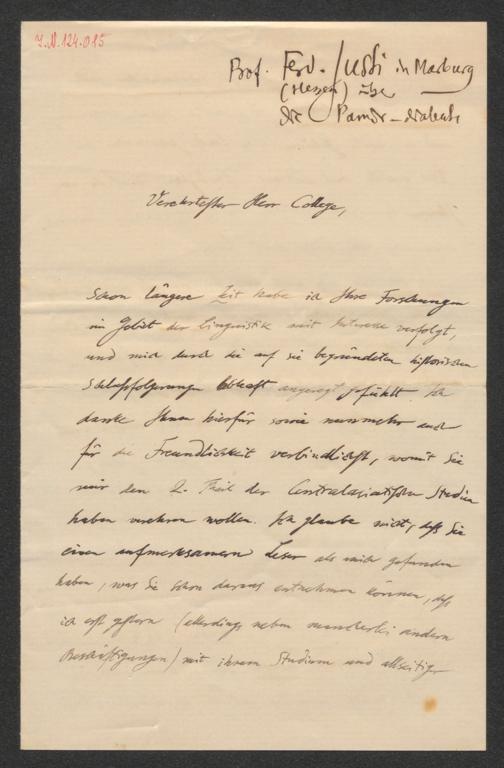 I.N. 124.015
Prof. Ferd. Justi in Marburg
(Hessen) über
die Pamir-dialekte
Verehrtester Herr College,
Schon längere Zeit habe ich Ihre Forschungen
im Gebiet der Linguistik mit Interesse verfolgt,
und mich durch die auf sie begründeten historischen
Schlußfolgerungen lebhaft angeregt gefühlt. Ich
danke Ihnen hierfür sowie nunmehr auch
für die Freundlichkeit verbindlichst, womit Sie
mir den 2. Theil der Centralasiatischen Studien
haben verehren wollen. Ich glaube nicht, daß Sie
einen aufmerksamern Leser als mich gefunden
haben, was Sie schon daraus entnehmen können, daß
ich erst gestern (allerdings neben mancherlei andern
Beschäftigungen) mit ihrem Studium und allseitiger